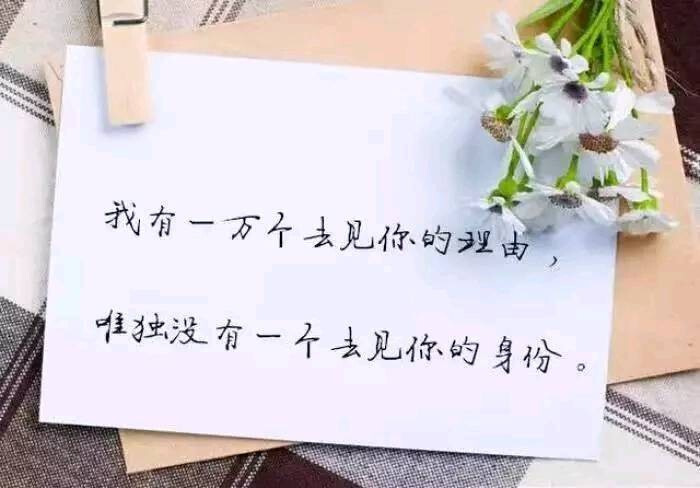 我有一万个去见你的理由，
唯独没有一个去见你的身份。